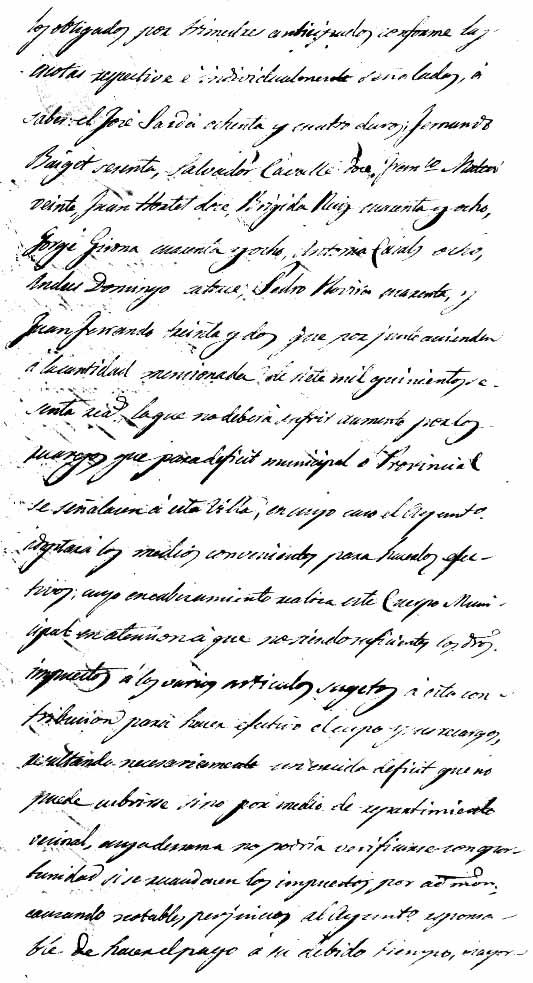 los obligados por trimestres anticipados conforme las
cuotas respective é individualmente señaladas, á
saber: el José Sardá ochenta y cuatro duros; Fernando
Baiget sesenta, Salvador Cavallé doce, Fran.co Mateu
veinte, Juan Hortet doce, Brigida Ruiz cuarenta y ocho,
Jorge Girona cuarenta y ocho, Antonia Casals ocho,
Andres Domingo catorce, Pedro Rovira cuarenta, y
Juan Ferrando treinta y dos que por junto ascienden
á la cantidad mencionada de siete mil quinientos se-
senta rea.s la que no deberá sufrir aumento por los
recargos que para deficit municipal ó Provincial
se señalasen á esta Villa, en cuyo caso el Ayunt.o
adoptará los medios convenientes para hacerlos efec-
tivos; cuyo encabezamiento realiza este Cuerpo Muni-
cipal en atencion á que no siendo suficientes los dros.
impuestos á los varios articulos sugetos á esta con-
tribucion para hacer efectivo el cupo y sus recargos,
resultando necesariamente un crecido deficit que no
puede cubrirse sino por medio de repartimiento
vecinal, cuya derrama no podria verificarse con opor-
tunidad si se recaudasen los impuestos por adm.on,
causando notables perjuicios al Ayunt.o responsa-
ble de hacer el pago á su debido tiempo, mayor-